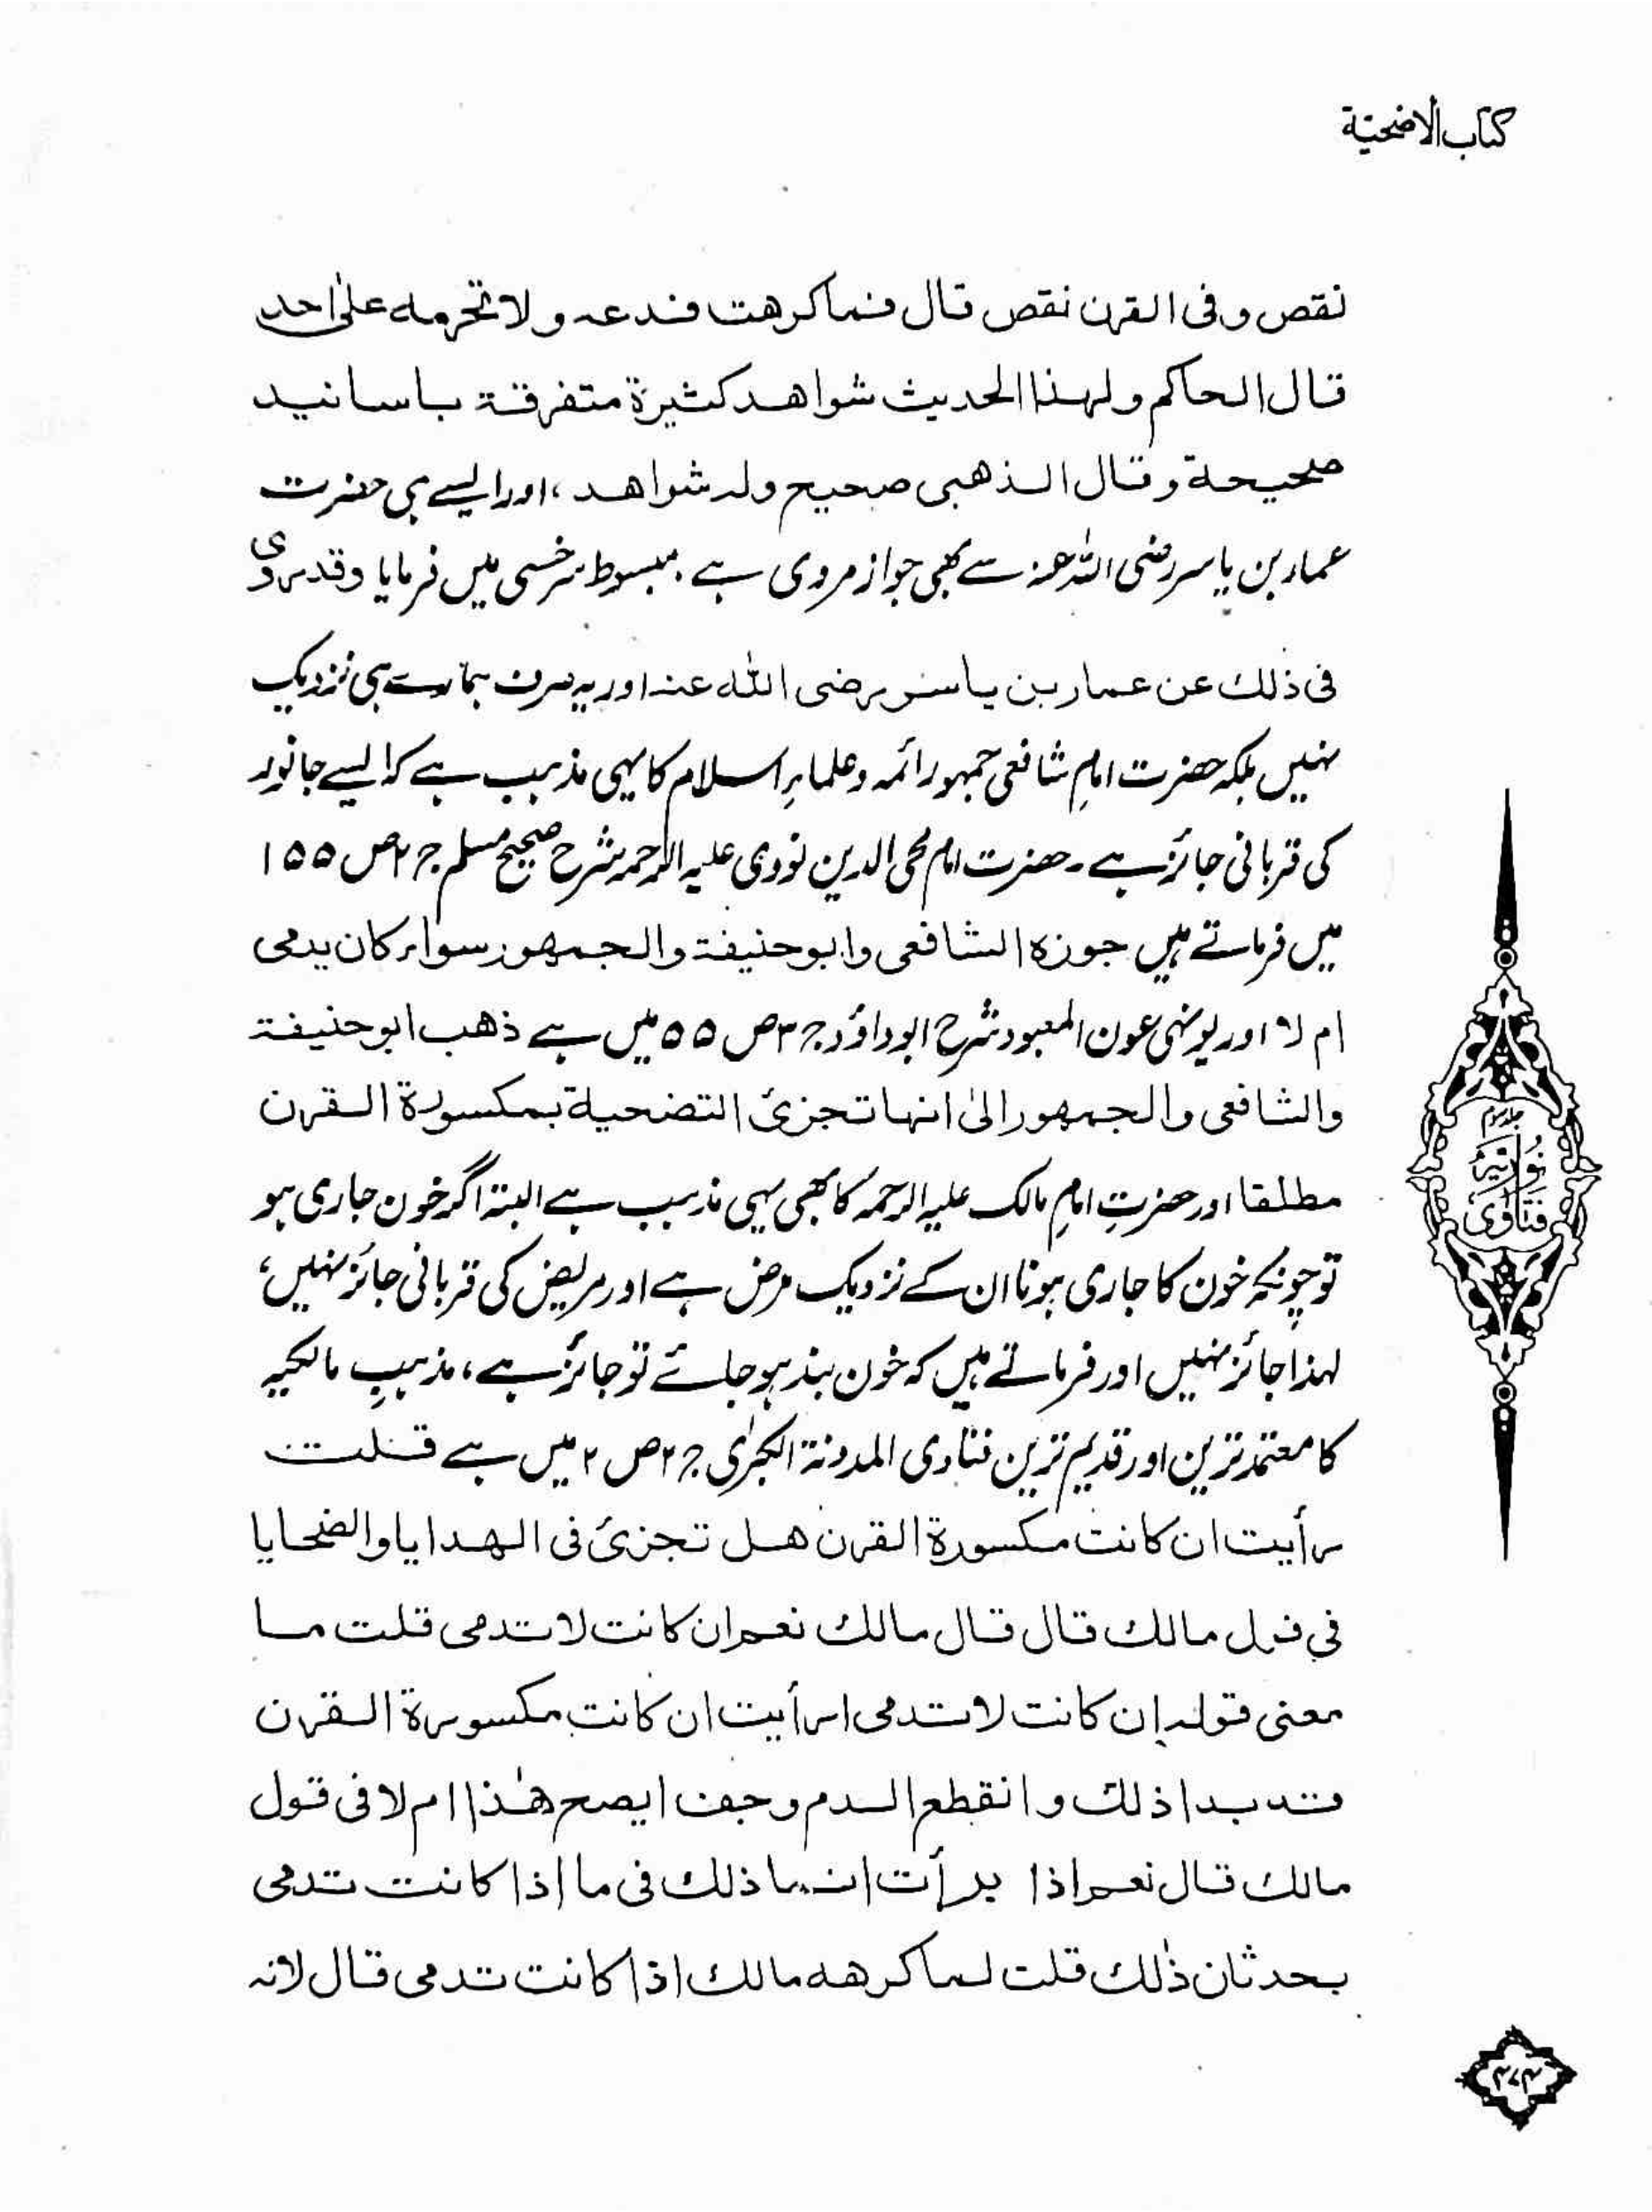 کتاب الاضحیّة
نقص وفی القرن نقص قال فما کرهت فدعه ولا تحرمه علیٰ احد
قال الحاکم ولهذا الحدیث شواهد کثیرة متفرقة باسانید
صحیحة وقال الذهبی صحیح وله شواهد، اور ایسے ہی حضرت
عمار بن یاسر رضی اللہ عنہ سے بھی جواز مروی ہے۔ مبسوط سرخسی میں فرمایا وقد روی
فی ذلك عن عمار بن یاسر رضی اللّٰه عنه اور یہ صرف ہمارے ہی نزدیک
نہیں بلکہ حضرت امامِ شافعی جمہور ائمہ وعلماءِ اسلام کا یہی مذہب ہے کہ ایسے جانور
کی قربانی جائز ہے۔ حضرت امام محی الدین نووی علیہ الرحمہ شرح صحیح مسلم ج ۲ ص ۱۵۵
میں فرماتے ہیں جوزه الشافعی وابوحنیفة والجمهور سواء کان یدمی
ام لا اور یونہی عون المعبود شرح ابوداؤد ج ۳ ص ۵۵ میں ہے ذهب ابوحنیفة
والشافعی والجمهور الیٰ انها تجزئ التضحیة بمکسورة القرن
مطلقا اور حضرتِ امامِ مالک علیہ الرحمہ کا بھی یہی مذہب ہے البتہ اگر خون جاری ہو
تو چونکہ خون کا جاری ہونا ان کے نزدیک مرض ہے اور مریض کی قربانی جائز نہیں،
لہذا جائز نہیں اور فرماتے ہیں کہ خون بند ہو جائے تو جائز ہے، مذہبِ مالکیہ
کا معتمد ترین اور قدیم ترین فتاوی المدونة الکبرٰی ج ۲ ص ۲ میں ہے قلت
رأیت ان کانت مکسورة القرن هل تجزئ فی الهدایا والضحایا
فی قول مالك قال قال مالك نعم ان کانت لا تدمی قلت ما
معنی قوله إن کانت لا تدمی ارأیت ان کانت مکسورة القرن
قد بدا ذلك وانقطع الدم وجف ایصح هٰذا ام لا فی قول
مالك قال نعم اذا برأت انما ذلك فی ما إذا کانت تدمی
بحدثان ذٰلك قلت لما کرهه مالك اذا کانت تدمی قال لانه
جلد سوم
نوریۂ
فتاوٰی
۴۷۴